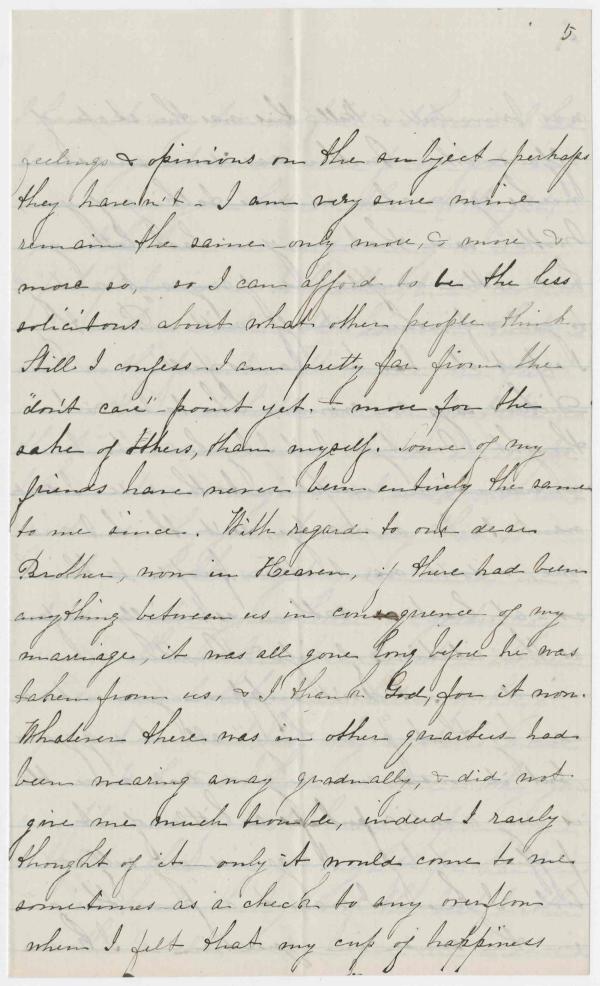 5
feelings & opinions on the subject - perhaps
they haven't - I am very sure mine
remain the same - only more, & more - &
more so, so I can afford to be the less
solicitous about what other people think.
Still I confess I am pretty far from the
"don't care" - point yet. - more for the
sake of others, than myself. Some of my
friends have never been entirely the same
to me since. With regard to our dear
Brother, now in Heaven, if there had been
anything between us in consequence of my
marriage, it was all gone long before he was
taken from us, & I thank God, for it now.
Whatever there was in other quarters had
been wearing away gradually, & did not
give me much trouble, indeed I rarely
thought of it only it would come to me
sometimes as a check to any overflow
when I felt that my cup of happiness